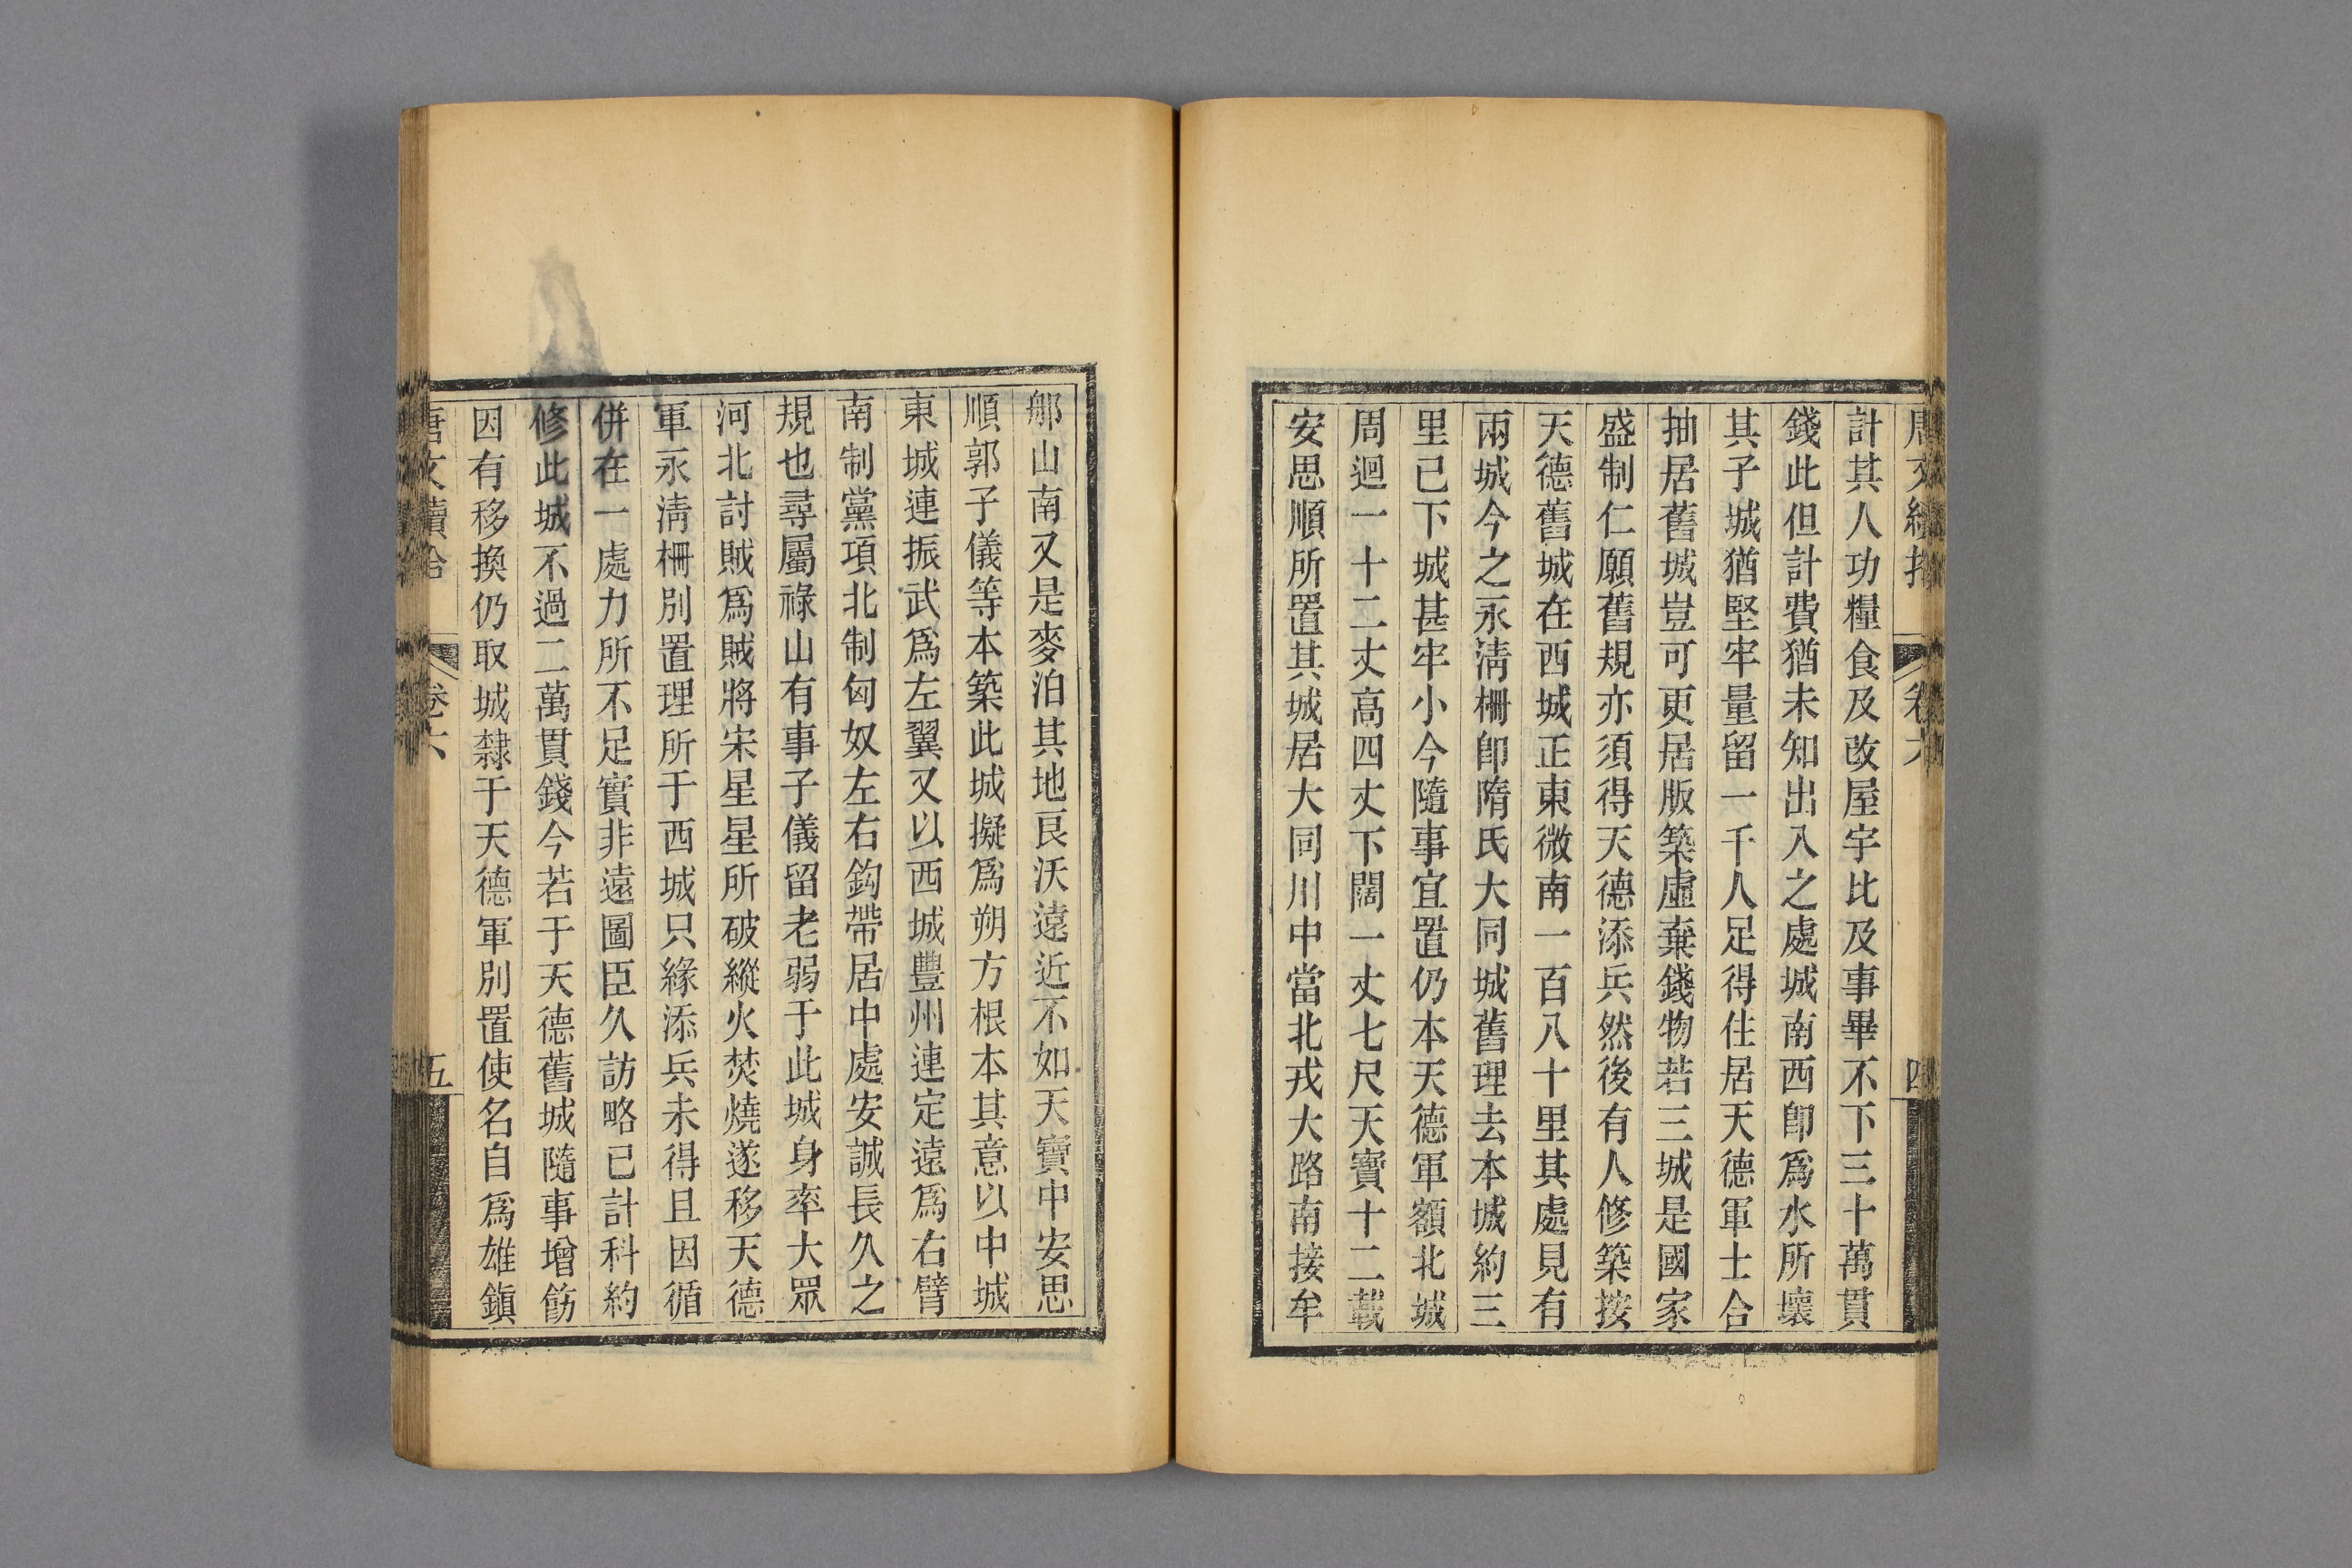 唐文續拾 卷六 四
計其人功糧食及改屋宇比及事畢不下三十萬貫
錢此但計費猶未知出入之處城南西卽爲水所壞
其子城猶堅牢量留一千人足得住居天德軍士合
抽居舊城豈可更居版築虛棄錢物若三城是國家
盛制仁願舊規亦須得天德添兵然後有人修築按
天德舊城在西城正東微南一百八十里其處見有
兩城今之永淸柵卽隋氏大同城舊理去本城約三
里已下城甚牢小今隨事宜置仍本天德軍額北城
周迴一十二丈高四丈下闊一丈七尺天寶十二載
安思順所置其城居大同川中當北戎大路南接牟
那山南又是麥泊其地良沃遠近不如天寶中安思
順郭子儀等本築此城擬爲朔方根本其意以中城
東城連振武爲左翼又以西城豐州連定遠爲右臂
南制黨項北制匈奴左右鈎帶居中處安誠長久之
規也尋屬祿山有事子儀留老弱于此城身率大眾
河北討賊爲賊將宋星星所破縱火焚燒遂移天德
軍永淸柵別置理所于西城只緣添兵未得且因循
併在一處力所不足實非遠圖臣久訪略已計科約
修此城不過二萬貫錢今若于天德舊城隨事增飾
因有移換仍取城隸于天德軍別置使名自爲雄鎭
唐文續拾 卷六 五